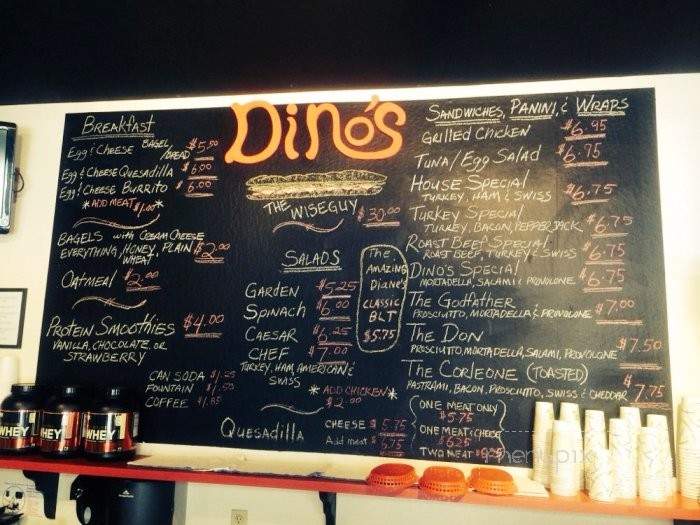 Breakfast
Egg & Cheese BAGEL /BREAD $5.00
Egg & Cheese Quesadilla $6.00
Egg & Cheese Burrito $6.00
*ADD MEAT $1.00*
BAGELS with CREAM CHEESE
EVERYTHING, HONEY, PLAIN $2.00
WHEAT
OATMEAL $2.00
PROTEIN SMOOTHIES $4.00
VANILLA, CHOCOLATE, OR
STRAWBERRY
CAN SODA $1.25
FOUNTAIN $1.50
COFFEE $1.85
Dino's
THE WISEGUY $30.00
SALADS
GARDEN $5.25
SPINACH $6.00
CAESAR $6.25
CHEF $7.00
TURKEY, HAM, AMERICAN &
SWISS
*ADD CHICKEN*
$2.00
The
AMAZING
Diane's
CLASSIC
BLT
$5.75
QUESADILLA CHEESE $5.75
Add meat
SANDWICHES, PANINI, & WRAPS
GRILLED CHICKEN $6.95
TUNA/EGG SALAD $6.75
HOUSE SPECIAL $6.75
TURKEY, HAM & SWISS
TURKEY SPECIAL $6.75
TURKEY, BACON, PEPPERJACK
ROAST BEEF SPECIAL $6.75
ROAST BEEF, TURKEY & SWISS
DINO'S SPECIAL $6.75
MORTADELLA, SALAMI & PROVOLONE
THE GODFATHER $7.00
PROSCIUTTO, MORTADELLA & PROVOLONE
THE DON $7.50
PROSCIUTTO, MORTADELLA, SALAMI, PROVOLONE
THE CORLEONE (TOASTED) $7.75
PASTRAMI, BACON, PROSCIUTTO, SWISS & CHEDDAR
ONE MEAT ONLY
$5.75
ONE MEAT & CHEESE
$6.25
TWO MEAT
menupix
WHEY
WHEY
WHEY